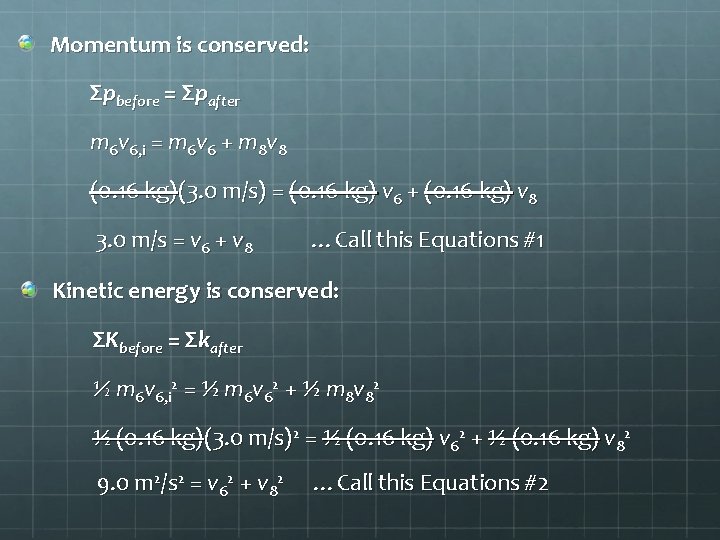 Momentum is conserved:
Σpbefore = Σpafter
m6v6,i = m6v6 + m8v8
(0.16 kg)(3.0 m/s) = (0.16 kg) v6 + (0.16 kg) v8
3.0 m/s = v6 + v8 …Call this Equations #1
Kinetic energy is conserved:
ΣKbefore = Σkafter
½ m6v6,i² = ½ m6v6² + ½ m8v8²
½ (0.16 kg)(3.0 m/s)² = ½ (0.16 kg) v6² + ½ (0.16 kg) v8²
9.0 m²/s² = v6² + v8² …Call this Equations #2